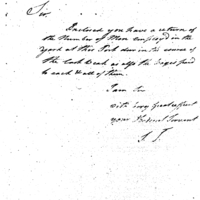 Sir
Inclosed you have a return of
the Number of Men employed in the
yard at this Port done in the course of
the Last Week as also the Wages paid
to each & all of them.
I am Sir
with very great respect
your Obedient Servant
S. T.